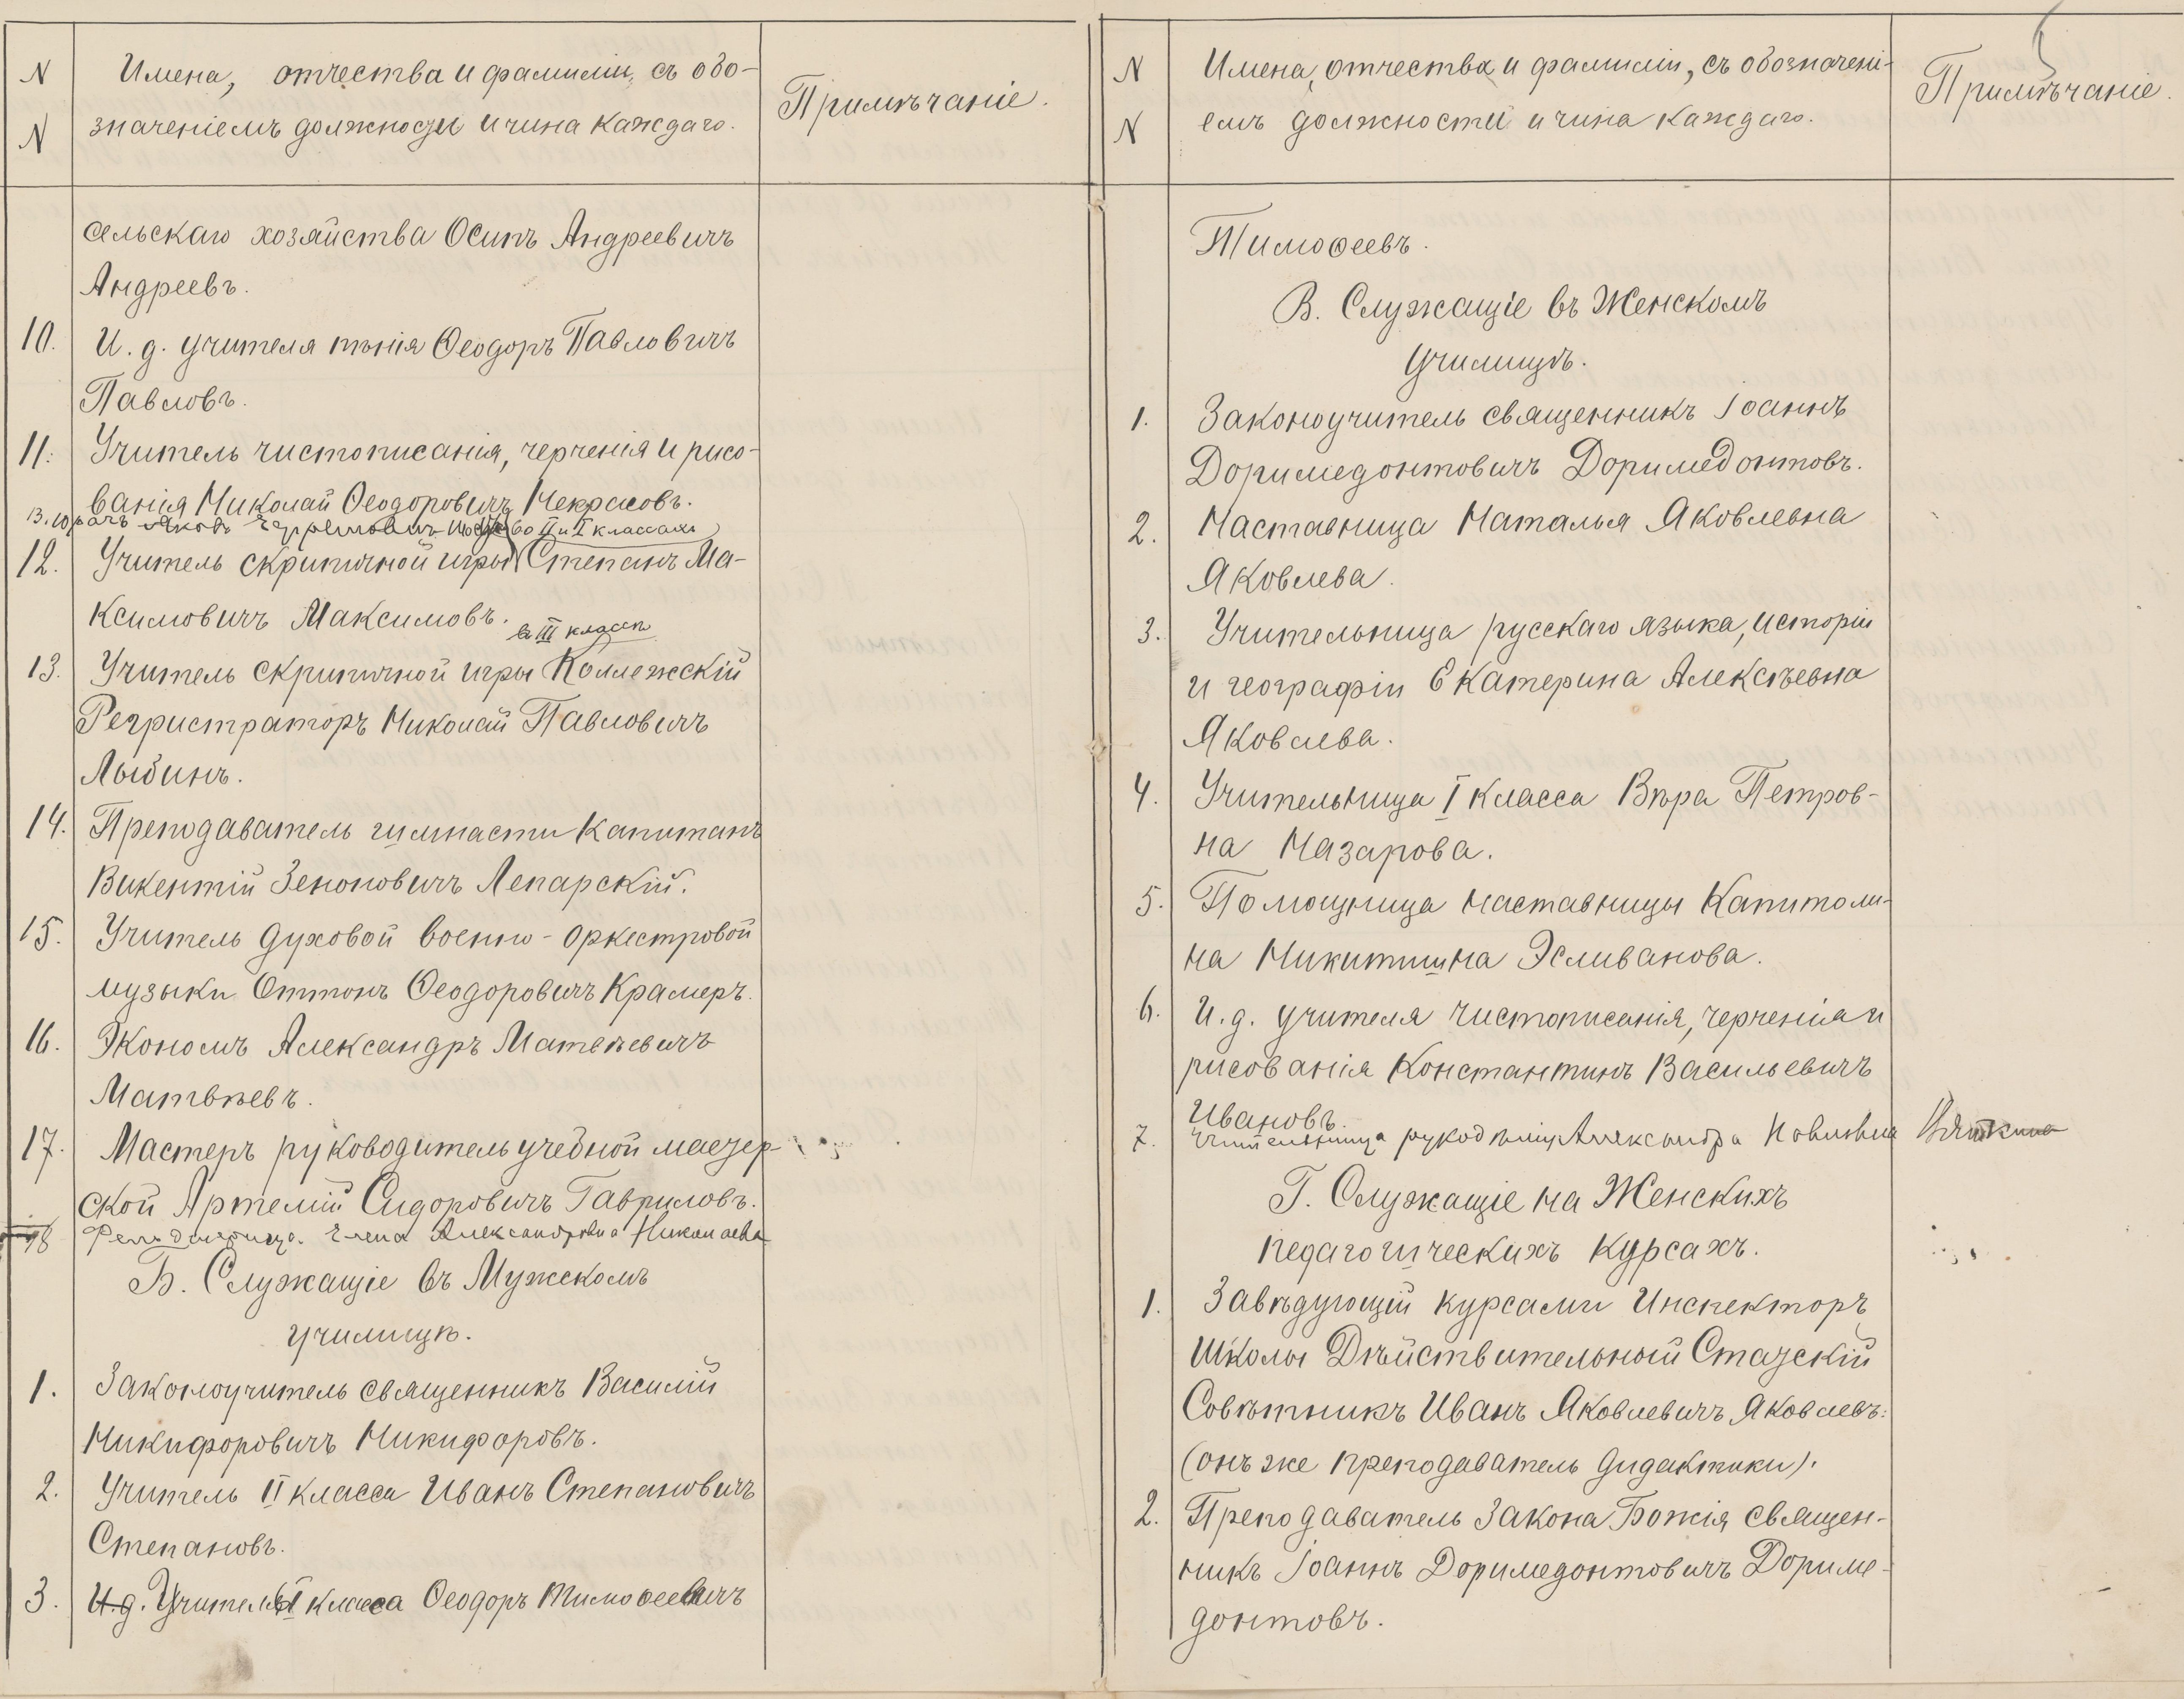 N
N
Имена, отчества и фамиліи, съ обо-
значеніемъ должности и чина каждаго.
Примѣчаніе.
сельскаго хозяйства Осипъ Андреевичъ
Андреевъ.
10. И. д. учителя пѣнія Ѳеодоръ Павловичъ
Павловъ.
11. Учитель чистописанія, черченія и рисо-
ванія Николай Ѳеодоровичъ Некрасовъ.
во II и I классахъ
12. Учитель скрипичной игры Степанъ Ма-
ксимовичъ Максимовъ.
въ III классѣ
13. Учитель скрипичной игры Коллежскій
Регристраторъ Николай Павловичъ
Лыбинъ.
14. Преподаватель гимнасти Капитанъ
Викентій Зеноновичъ Лепарскій.
15. Учитель духовой военно-оркестровой
музыки Оттонъ Ѳеодоровичъ Крамеръ.
16. Экономъ Александръ Матвѣевичъ
Матвѣевъ.
17. Мастеръ руководитель учебной мастер-
ской Артемій Сидоровичъ Гавриловъ.
18 Фельдшерица. Елена Александровна Николаева
Б. Служащіе въ Мужскомъ
училищѣ.
1. Законоучитель священникъ Василій
Никифоровичъ Никифоровъ.
2. Учитель II класса Иванъ Степановичъ
Степановъ.
3. И. д. Учитель I класса Ѳеодоръ Тимоѳеевичъ
N
N
Имена, отчества и фамиліи, съ обозначені-
емъ должности и чина каждаго.
Примѣчаніе.
Тимоѳеевъ.
В. Служащіе въ Женскомъ
Училищѣ.
1. Законоучитель священникъ Іоаннъ
Доримедонтовичъ Доримедонтовъ.
2. Наставница Наталья Яковлевна
Яковлева.
3. Учительница русскаго языка, исторіи
и географіи Екатерина Алексѣевна
Яковлева.
4. Учительница I класса Вѣра Петров-
на Назарова.
5. Помощница наставницы Капитоли-
на Никитишна Эсливанова.
6. И. д. учителя чистописанія, черченія и
рисованія Константинъ Васильевичъ
Ивановъ.
7. Учительница рукодѣлія Александра Павловна
Г. Служащіе на Женскихъ
педагогическихъ курсахъ.
1. Завѣдующій курсами Инспекторъ
Школы Дѣйствительный Статскій
Совѣтникъ Иванъ Яковлевичъ Яковлевъ:
(онъ же преподаватель дидактики).
2. Преподаватель Закона Божія священ-
никъ Іоаннъ Доримедонтовичъ Дориме-
донтовъ.